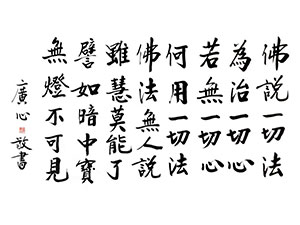 佛說一切法
為治一切心
若無一切心
何用一切法
佛法無人說
雖慧莫能了
譬如暗中寶
無燈不可見
廣心敬書